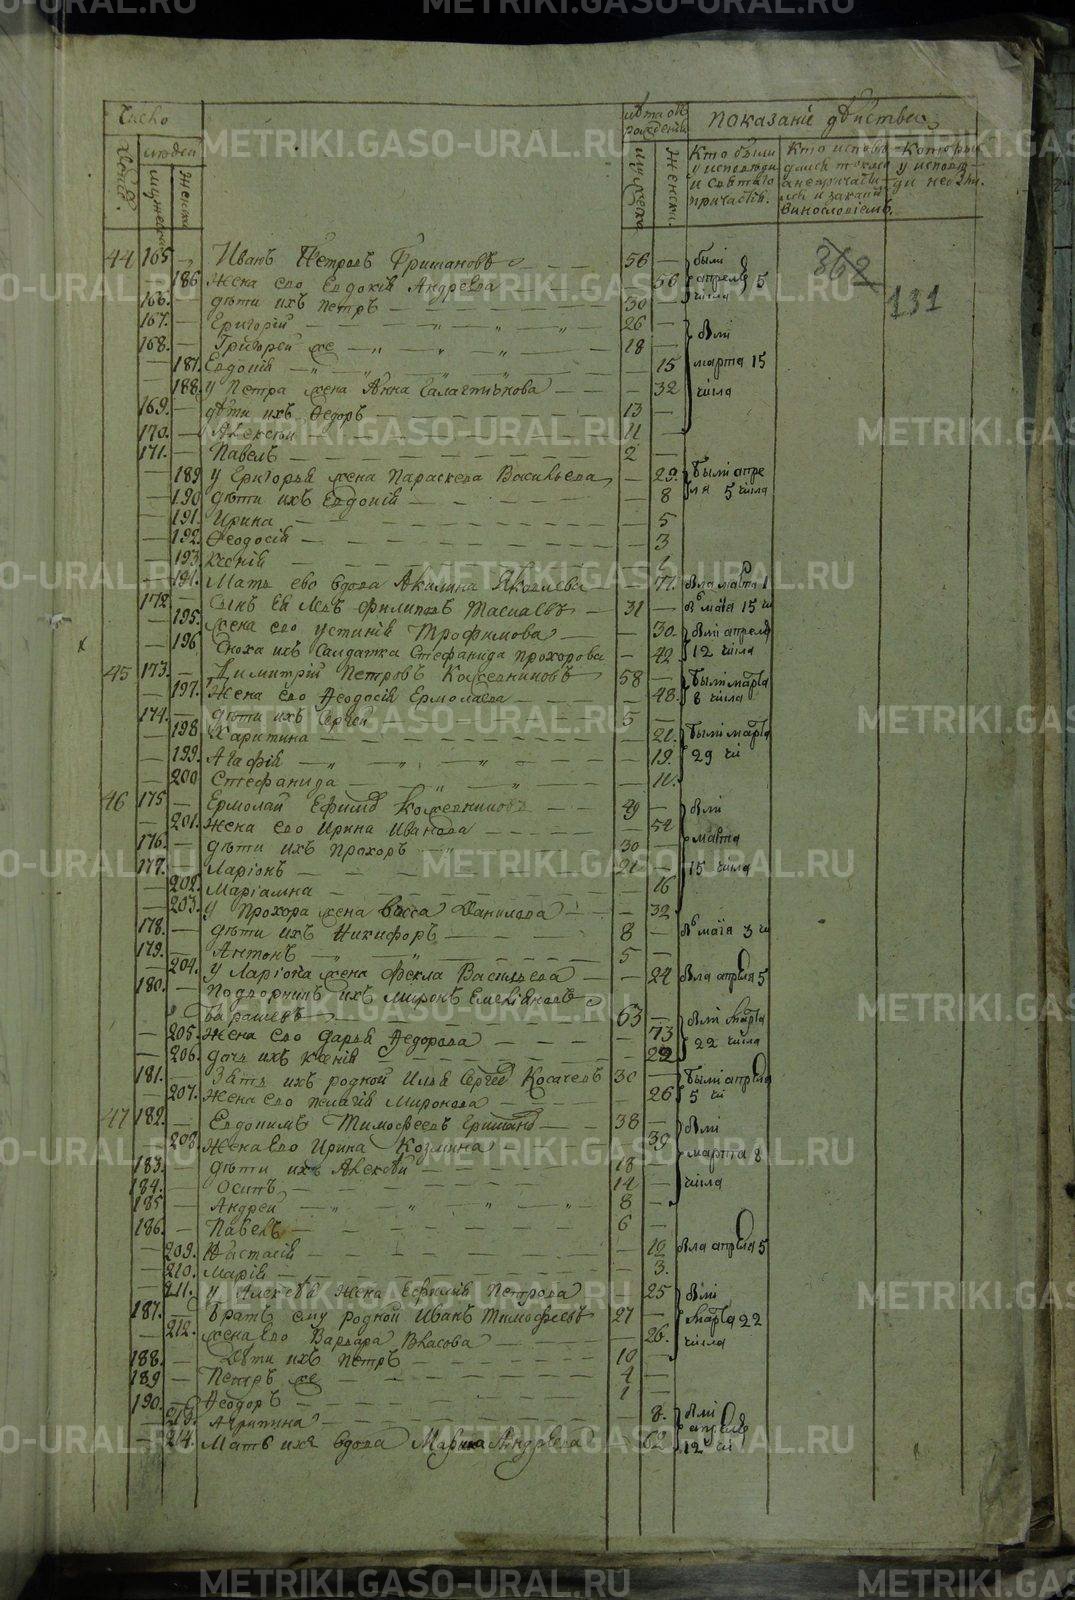 METRIKI.GASO-URAL.RU
Число
людей
мужеска
женска
лѣта отъ рожденія
мужеска
женска.
Показаніе дѣйства
Кто были у исповѣди и святаго причастія.
Кто исповѣдался токмо а не причастился и за какимъ винословіемъ.
Которыи у исповѣди не были.
362
131
44 165 — Иванъ Петровъ Гришановъ 56 — были
— 186 Жена ево Евдокія Андреева — 56 апреля 5
166. — дѣти ихъ Петръ 30 — числа
167. — Григорій 26 —
168. — Григорей же 18 — были
— 187. Евдокія — 15 марта 15
— 188. у Петра жена Анна — 32 числа
169. — дѣти ихъ Ѳедоръ 13 —
170. — Алексѣй 11 —
171. — Павелъ 2 —
— 189 у Григорья жена Параскева Васильева — 29. были апре
— 190 дѣти ихъ Евдокія — 8 ля 5 числа
— 191. Ирина — 5
— 192. Ѳеодосія — 3
— 193. Ксенія — 1
— 194. Мать ево вдова Акилина Яковлева — 77. была марта 1
172 — Сынъ ея Левъ Филиповъ 31 — маія 15 чи
— 195. жена ево Устинія Трофимова — 30. были апреля
— 196 Сноха ихъ Салдатка Стефанида Прохорова — 42 12 числа
45 173. — Димитрій Петровъ Кожевниковъ 58 — были марта
— 197. Жена ево Ѳеодосія Ермолаева — 48. 8 числа
174. — дѣти ихъ Сергей 5 —
— 198 Харитина — 21. были марта
— 199. Агафія — 19. 29 чи
— 200 Стефанида — 11.
46 175 — Ермолай Ефимовъ Кожевниковъ 49 — были
— 201. Жена ево Ирина Иванова — 52 марта
176. — дѣти ихъ Прохоръ 30 —
177. — Ларіонъ 21 — 15 числа
— 202. Маріамна — 16
— 203. у Прохора жена Васса Данилова — 32
178. — дѣти ихъ Никифоръ 8 — маія 3 чи
179. — Антонъ 5 —
— 204. у Ларіона жена Фекла Васильева — 24 была апреля 5
180. — Подворникъ ихъ Миронъ Емельяновъ
Барашевъ 63 — были марта
— 205. Жена ево Дарья Ѳедорова — 73 22 числа
— 206. дочь ихъ Ксенія — 22
181. — Зять ихъ родной Илья Сергеевъ Косачевъ 30 — были апреля
— 207. Жена ево Пелагія Миронова — 26 5 чи
47 182. — Евдокимъ Тимофеевъ Гришановъ 38 — были
— 208 Жена ево Ирина Козмина — 39 марта 8
183. — дѣти ихъ Алексѣй 18 —
184. — Осипъ 14 — числа
185 — Андрей 8 —
186. — Павелъ 6 —
— 209. Настасія — 10 была апреля 5
— 210. Марія — 3.
— 211. у Алексѣя жена Евфимія Петрова — 25 были
187. — Братъ ему родной Иванъ Тимофеевъ 27 — марта 22
— 212. жена ево Варвара Власова — 26. числа
188. — Дѣти ихъ Петръ 10 —
189 — Петръ же 4 —
190. — Ѳеодоръ 1 —
— 213. — 8. были
— 214. Мать ихъ вдова Андреева — 62 апреля
12 чи